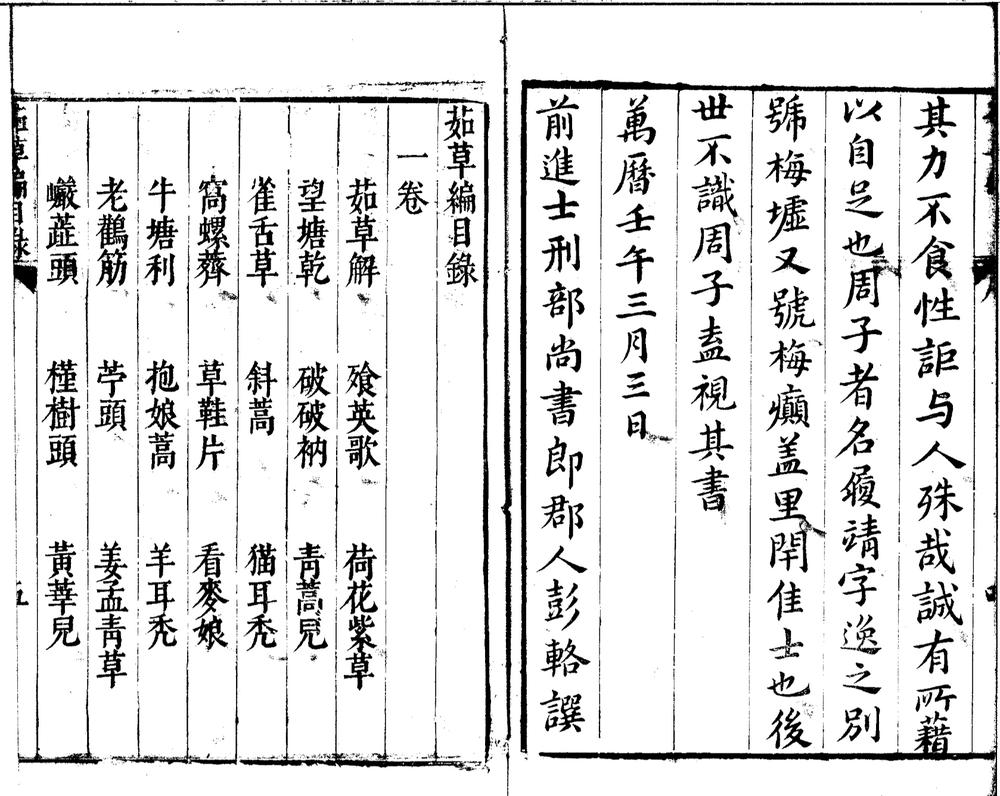 其力不食性詎与人殊哉誠有所藉
以自足也周子者名履靖字逸之別
號梅墟又號梅癲盖里閈佳士也後
世不識周子盍視其書
萬曆壬午三月三日
前進士刑部尚書郎郡人彭輅譔
茹草編目錄
一卷
茹草解 飱英歌 荷花紫草
望塘乾 破破衲 青蒿兒
雀舌草 斜蒿 猫耳禿
窩螺薺 草鞋片 看麥娘
牛塘利 抱娘蒿 羊耳禿
老鸛筋 苧頭 姜孟青草
蘆頭 槿樹頭 黃華兒
草編目錄 五